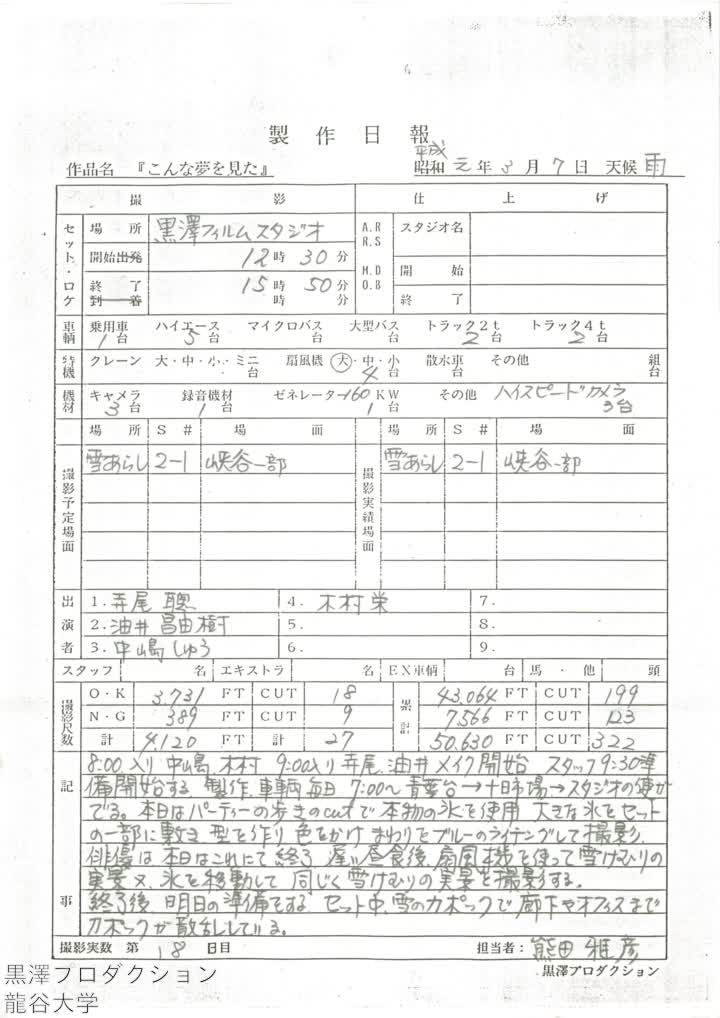 製作日報
平成
作品名 『こんな夢を見た』 昭和 元年 3月 7日 天候 雨
撮影 仕上げ
セット・ロケ 場所 黒澤フィルムスタジオ A.R R.S スタジオ名
開始出発 12時 30分
M.D O.B 開始
終了 15時 50分
到着 時 分 終了
車輌 乗用車 1台 ハイエース 5台 マイクロバス 台 大型バス 台 トラック2t 2台 トラック4t 2台
特機 クレーン 大・中・小・ミニ 台 扇風機 大・中・小 4台 散水車 台 その他 組台
機材 キャメラ 3台 録音機材 1台 ゼネレーター 160KW 1台 その他 ハイスピードカメラ 3台
場所 S# 場面 場所 S# 場面
撮影予定場面 雪あらし 2-1 峡谷一部 撮影実績場面 雪あらし 2-1 峡谷一部
出演者 1.寺尾聰 4.木村栄 7.
2.油井昌由樹 5. 8.
3.中嶋しゅう 6. 9.
スタッフ 名 エキストラ 名 EX車輌 台 馬・他 頭
撮影尺数 O・K 3.731 FT CUT 18 累計 43.064 FT CUT 199
N・G 389 FT CUT 9 7.566 FT CUT 123
計 4.120 FT 計 27 50.630 FT CUT 322
記事 8:00入り 中嶋 木村 9:00入り 寺尾 油井 メイク開始 スタッフ9:30準
備開始する 製作車輌毎日 7:00〜青葉台→十日市場→スタジオの便が
でる。本日はパーティーの歩きのcutで本物の氷を使用 大きな氷をセット
の一部に敷き型を作り色をかけ まわりをブルーのライテングして撮影
俳優は本日はこれにて終了 遅い昼食後 扇風機を使って雪けむりの
実景 又、氷を移動して 同じく雪けむりの実景を撮影する。
終了後 明日の準備をする セット中、雪のカポックで廊下やオフィスまで
カポックが散乱している。
撮影実数 第 18 日目 担当者:熊田雅彦
黒澤プロダクション
黒澤プロダクション
龍谷大学